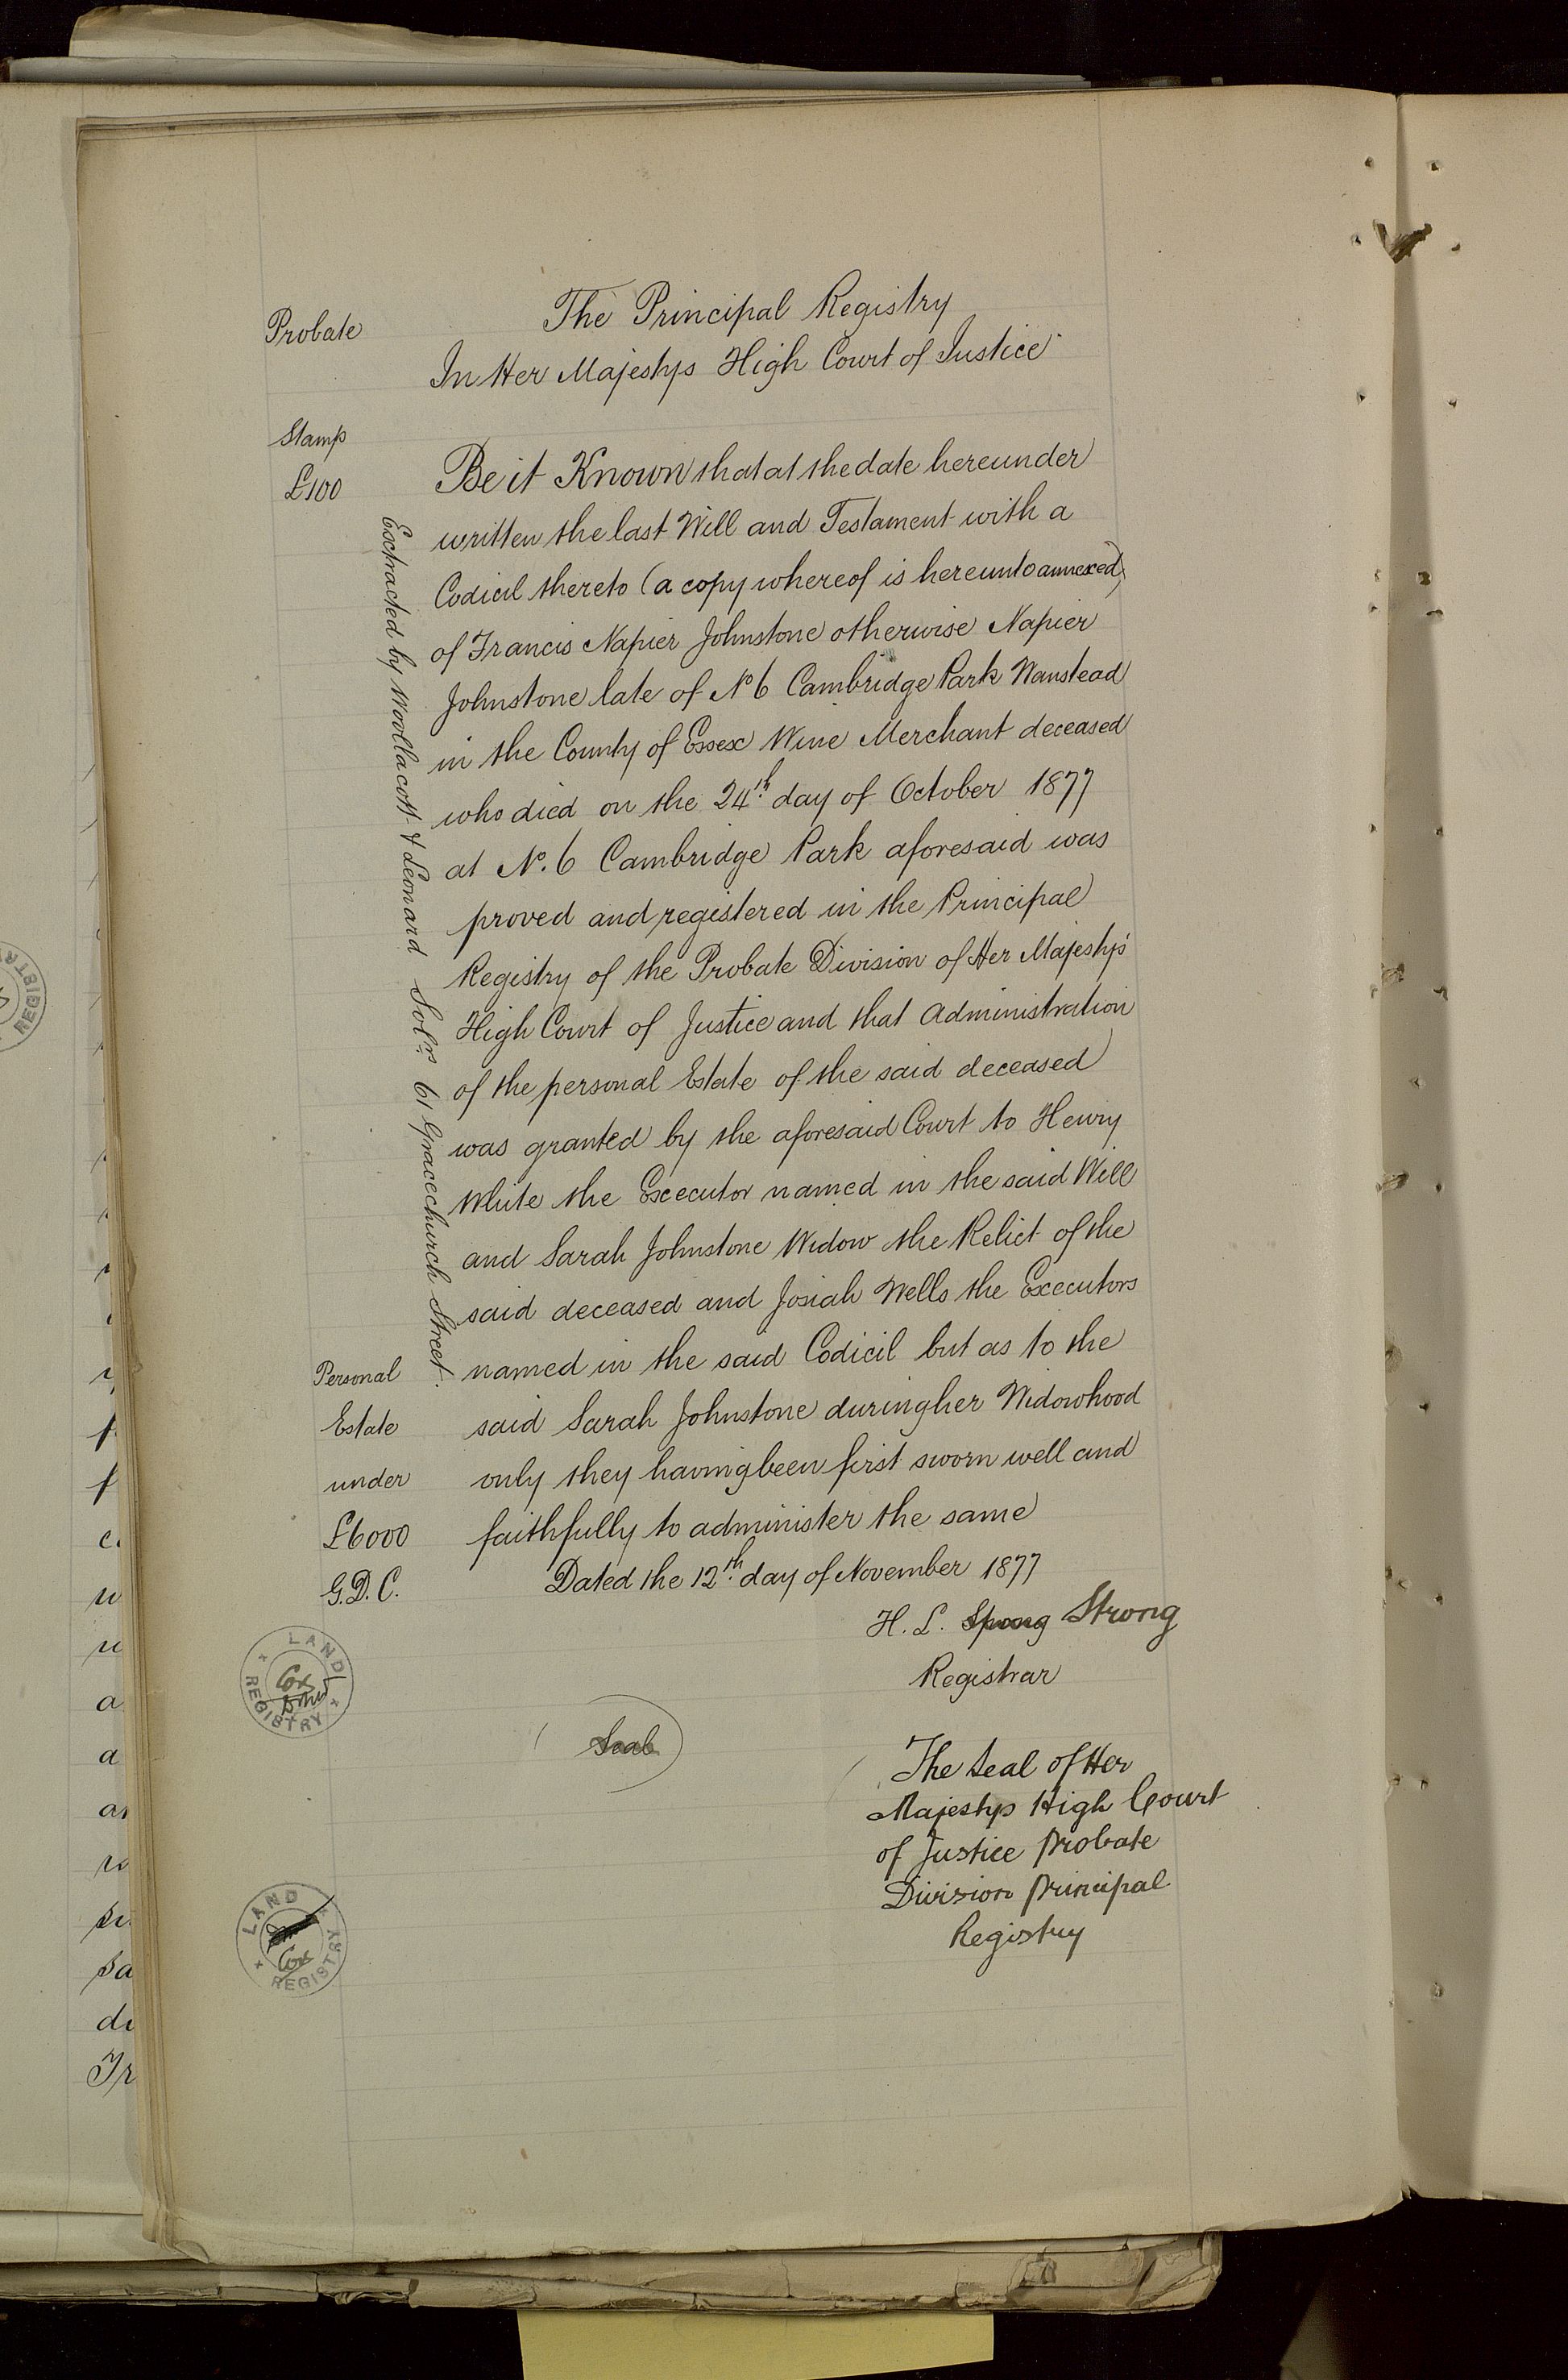 Probate
The Principal Registry
In Her Majestys High Court of Justice
Stamp
£100
Be it Known that at the date hereunder
written the last Will and Testament with a
Codicil thereto (a copy whereof is hereunto annexed)
of Francis Napier Johnstone otherwise Napier
Johnstone late of No 6 Cambridge Park Wanstead
in the County of Essex Wine Merchant deceased
who died on the 24th day of October 1877
at No. 6 Cambridge Park aforesaid was
proved and registered in the Principal
Registry of the Probate Division of Her Majestys
High Court of Justice and that administration
of the personal Estate of the said deceased
was granted by the aforesaid Court to Henry
White the Executor named in the said Will
and Sarah Johnstone Widow the Relict of the
said deceased and Josiah Wells the Executors
named in the said Codicil but as to the
said Sarah Johnstone during her Widowhood
only they having been first sworn well and
faithfully to administer the same
Extracted by Woollacott & Leonard Solrs 61 Gracechurch Street.
Personal
Estate
under
£6000
G.D.C.
Dated the 12th day of November 1877
H. L. Spong Strong
Registrar
LAND REGISTRY
Cox
Seal
The Seal of Her
Majestys High Court
of Justice Probate
Division Principal
Registry
LAND REGISTRY
Cox
REGISTRY